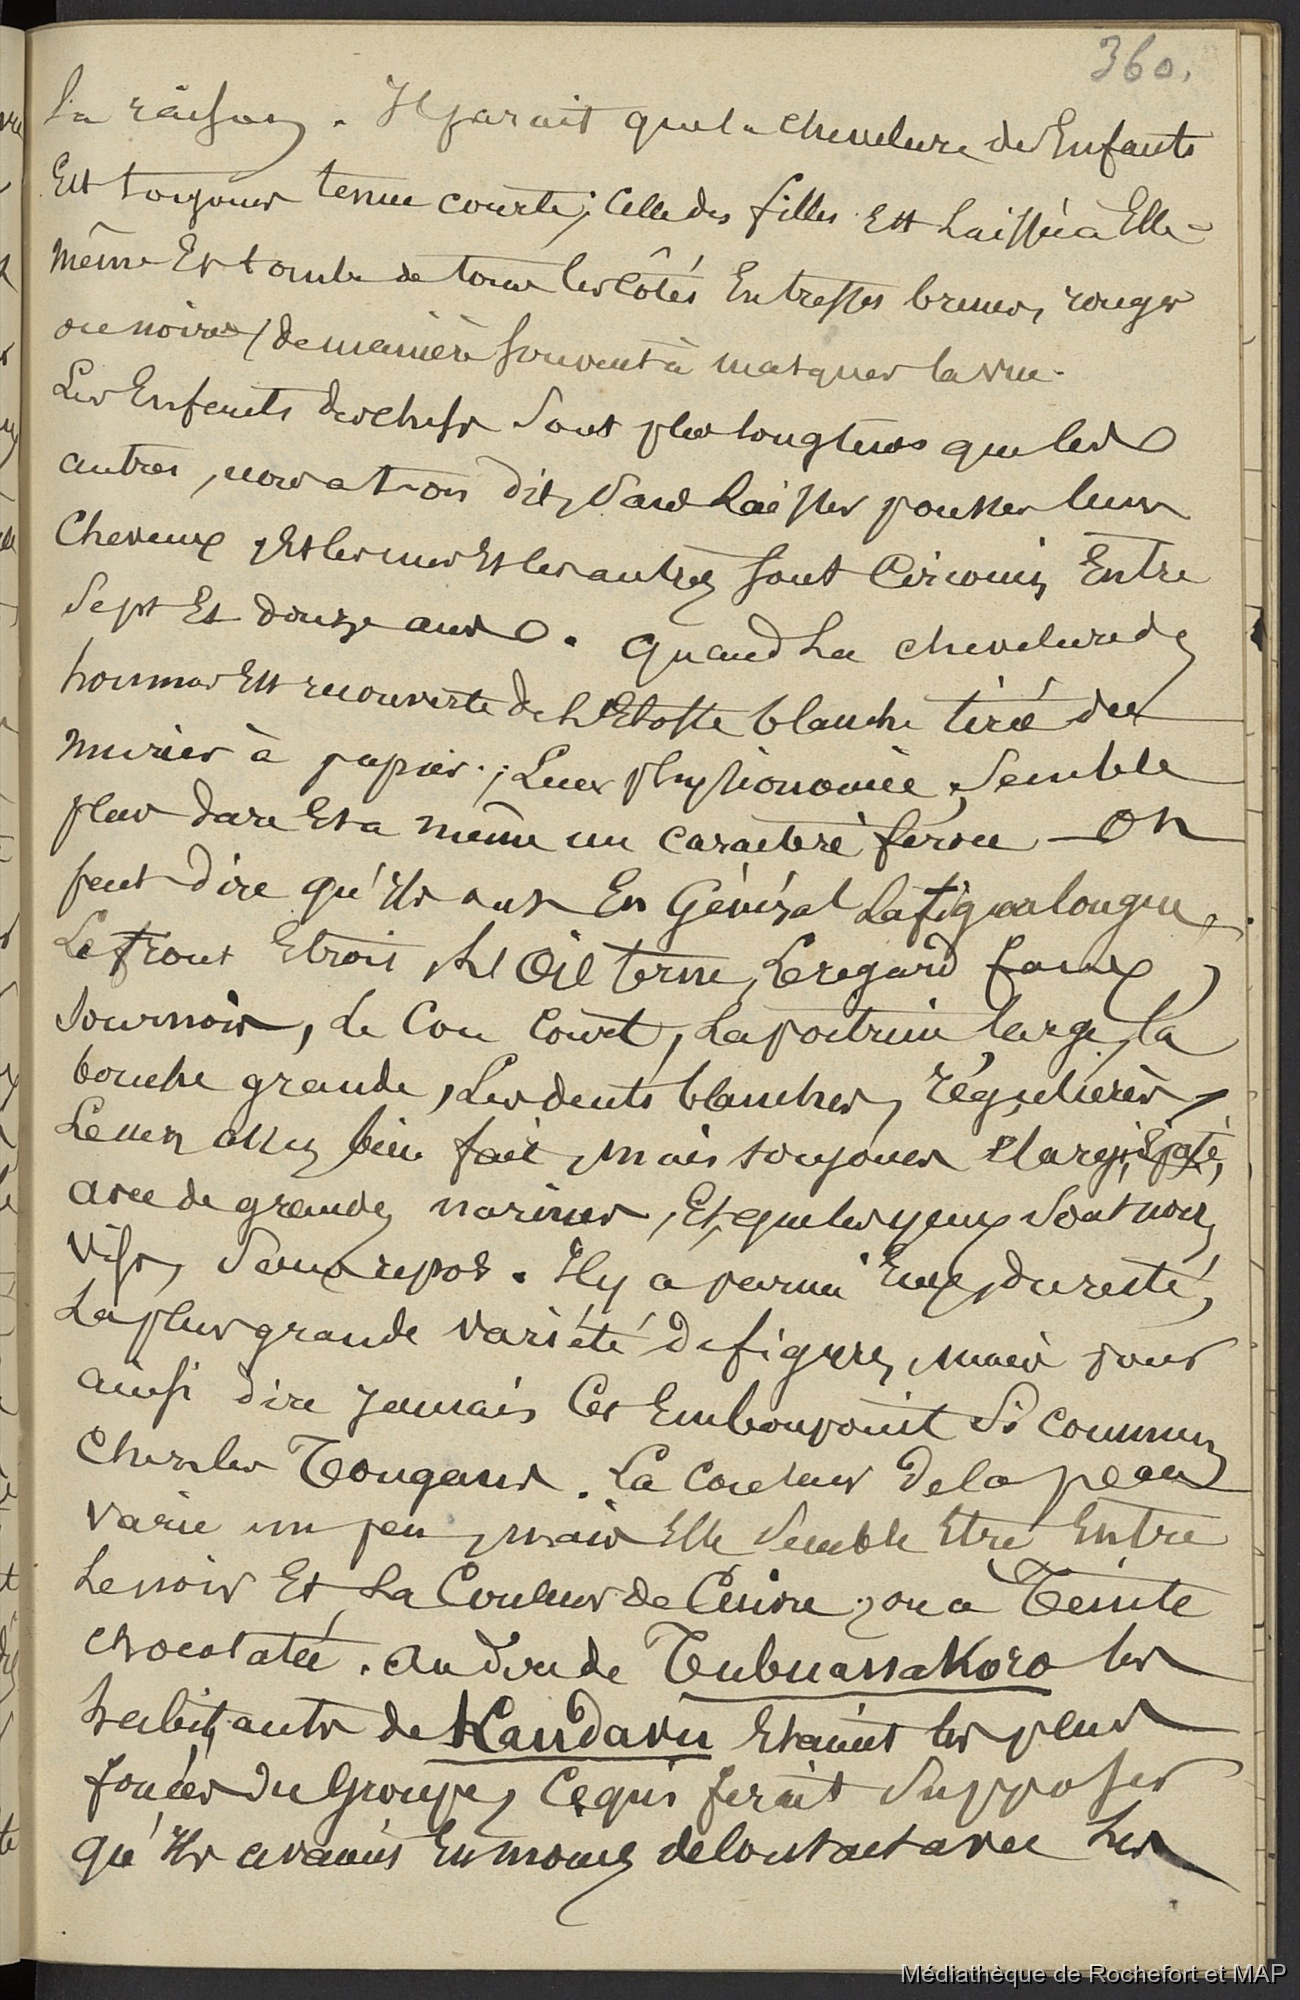 360.
La raison. Il parait que la chevelure des Enfants
Est toujours tenue courte; Celle des filles Est Laissée à Elle-
même Et tombe de tous les côtés En tresses brunes, rouges
ou noires, de manière souvent à masquer la vue.
Les Enfants des chefs sont plus longtems que les
autres, nous a t-on dit, sans Laisser pousser leurs
Cheveux, Et les uns Et les autres sont Circoncis Entre
Sept Et douze ans. Quand La chevelure des
hommes Est recouverte de L'Etoffe blanche tirée du
murier à papier; Leur physionomie semble
plus dure Et a même un caractère féroce — On
peut dire qu'ils ont En Général La figure longue,
Le front Etroit, L'Œil terne, Le regard faux,
Sournois, Le Cou Court, La poitrine large, la
bouche grande, Les dents blanches, régulières,
Le nez assez bien fait, mais toujours Elargi, Epaté,
avec de grandes narines, Et que les yeux sont noirs,
vifs, Sans repos. Il y a parmi Eux, du reste,
La plus grande variété de figures, mais pour
ainsi dire jamais Cet Embonpoint Si commun
Chez les Tongans. La Couleur de la peau
varie un peu, mais Elle semble Etre Entre
Le noir Et La Couleur de Cuivre, ou a Teinte
chocolatée. Au dire de Tubuassakoro les
habitants de Kandavu Etaient les plus
foncés du Groupe, Ce qui ferait Supposer
qu'ils avaient En moins de Contact avec Les
Médiathèque de Rochefort et MAP